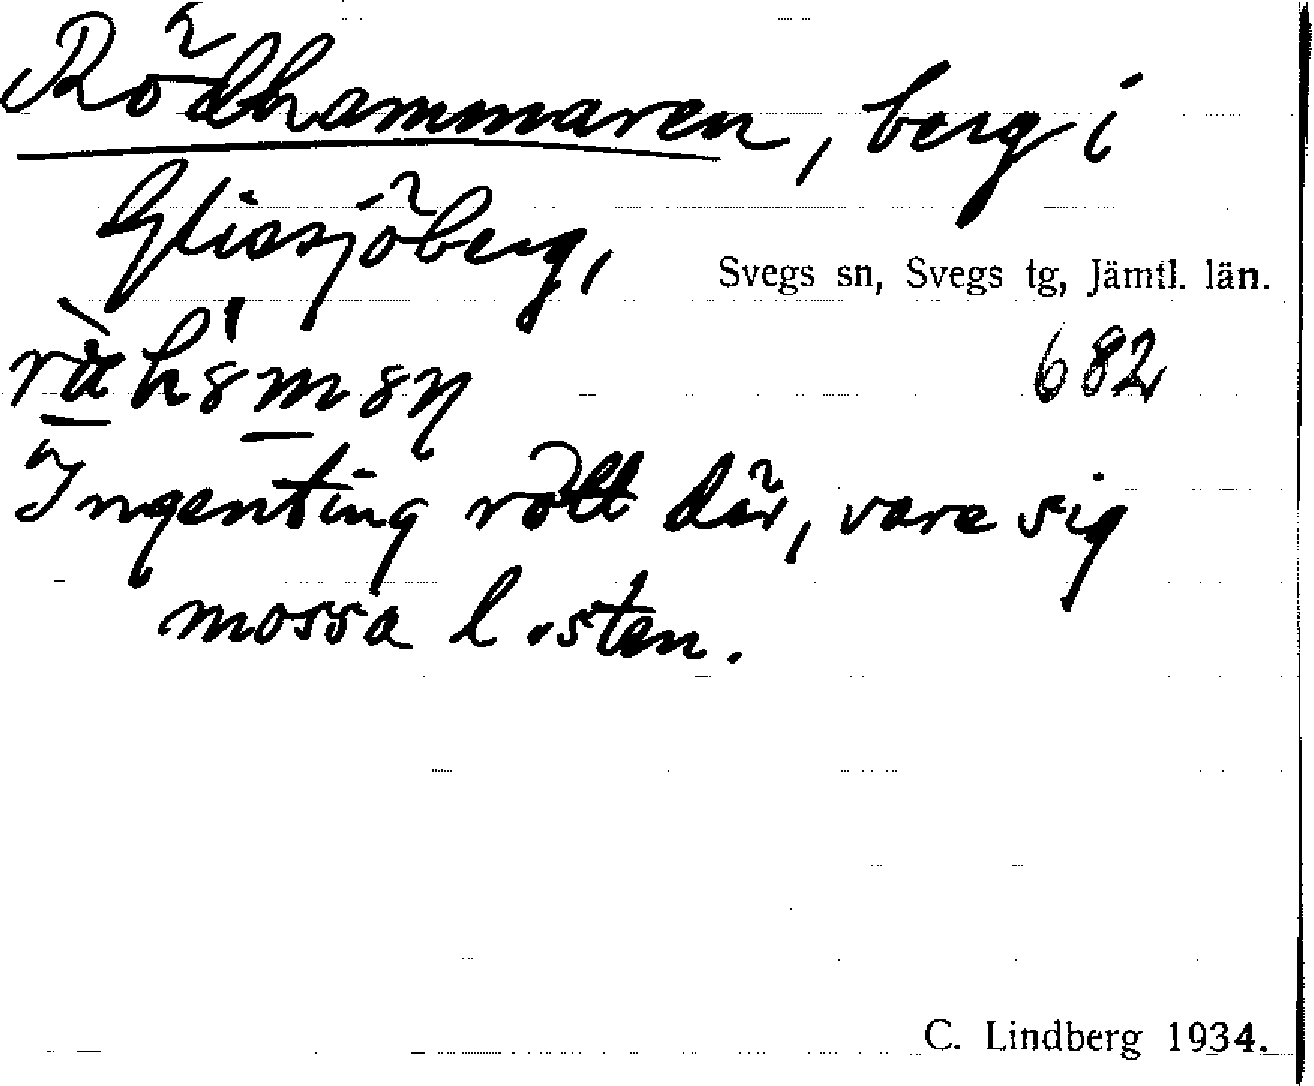 Rödhammaren, berg i
Glissjöberg,
Svegs sn, Svegs tg, Jämtl. län.
682
Ingenting rött där, vare sig
mossa l. sten.
C. Lindberg 1934.